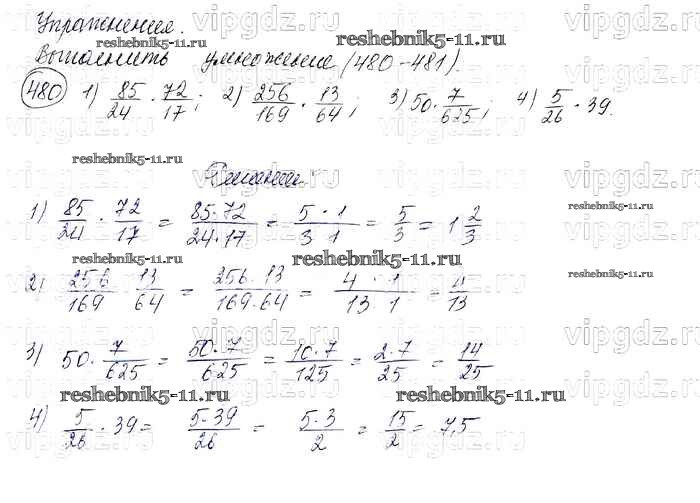 Упражнения.
Выполнить умножение (480-481).
480 1) 85/24 · 72/17; 2) 256/169 · 13/64; 3) 50 · 7/625; 4) 5/26 · 39.
Решение:
1) 85/24 · 72/17 = 85·72/24·17 = 5·1/3 1 = 5/3 = 1 2/3
2) 256/169 13/64 = 256·13/169·64 = 4·1/13·1 = 4/13
3) 50 · 7/625 = 50·7/625 = 10·7/125 = 2·7/25 = 14/25
4) 5/26 · 39 = 5·39/26 = 5·3/2 = 15/2 = 7,5
vipgdz.ru
reshebnik5-11.ru